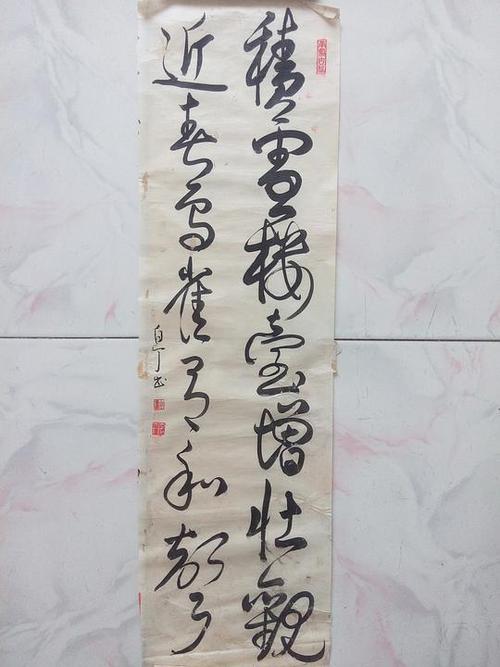 積雪樓臺增壯觀
近春鳥雀有和聲
白丁书